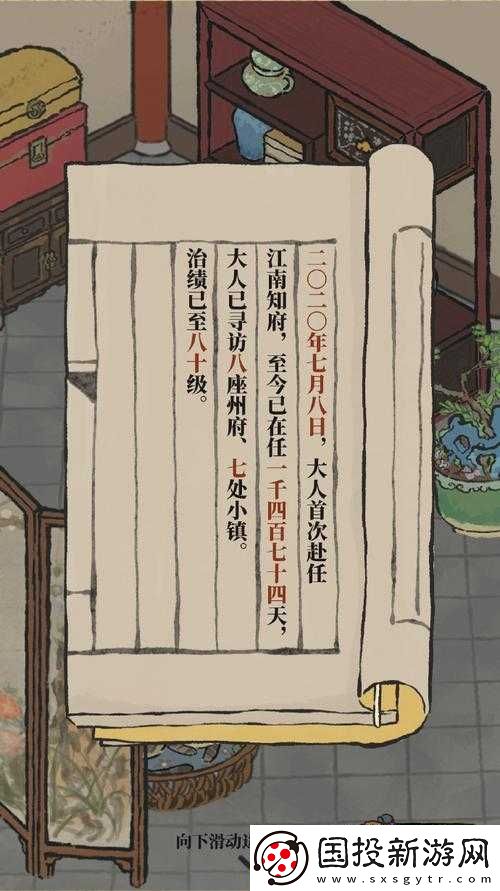 二〇二〇年七月八日，大人首次赴任
江南知府，至今已在任一千四百七十四天，
大人已寻访八座州府、七处小镇。
治绩已至八十级。
向下滑动
国投新游网
www.sxsgytr.com